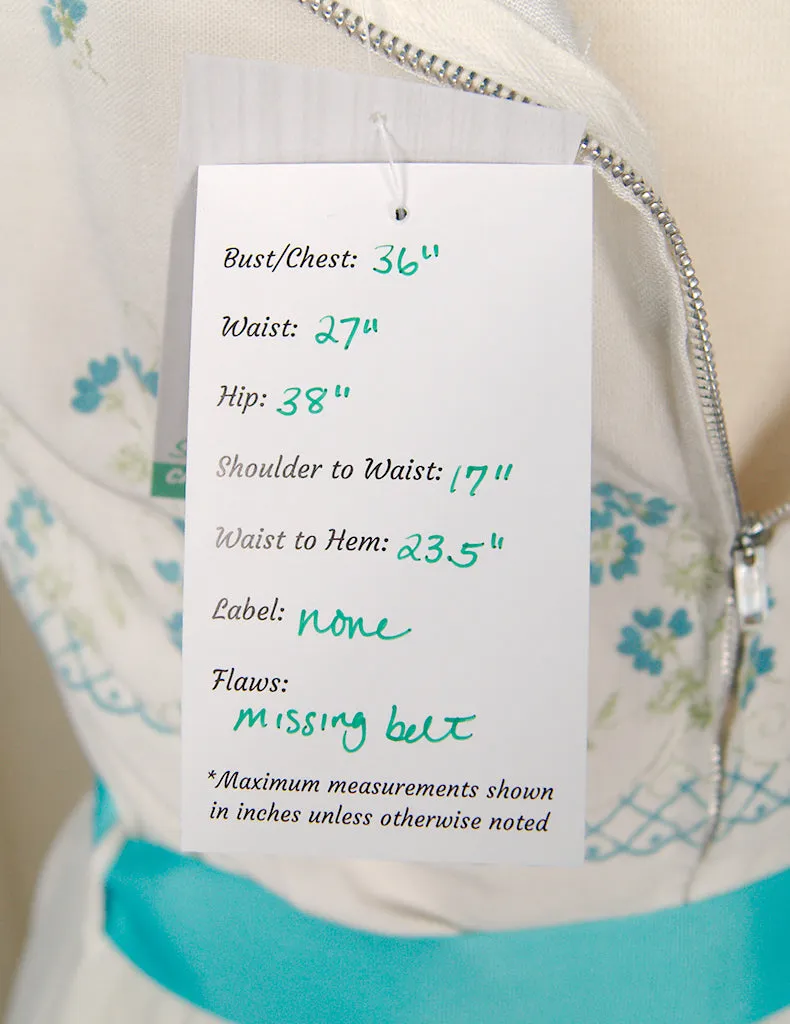 Bust/Chest: 36"
Waist: 27"
Hip: 38"
Shoulder to Waist: 17"
Waist to Hem: 23.5"
Label: none
Flaws:
missing belt
*Maximum measurements shown
in inches unless otherwise noted